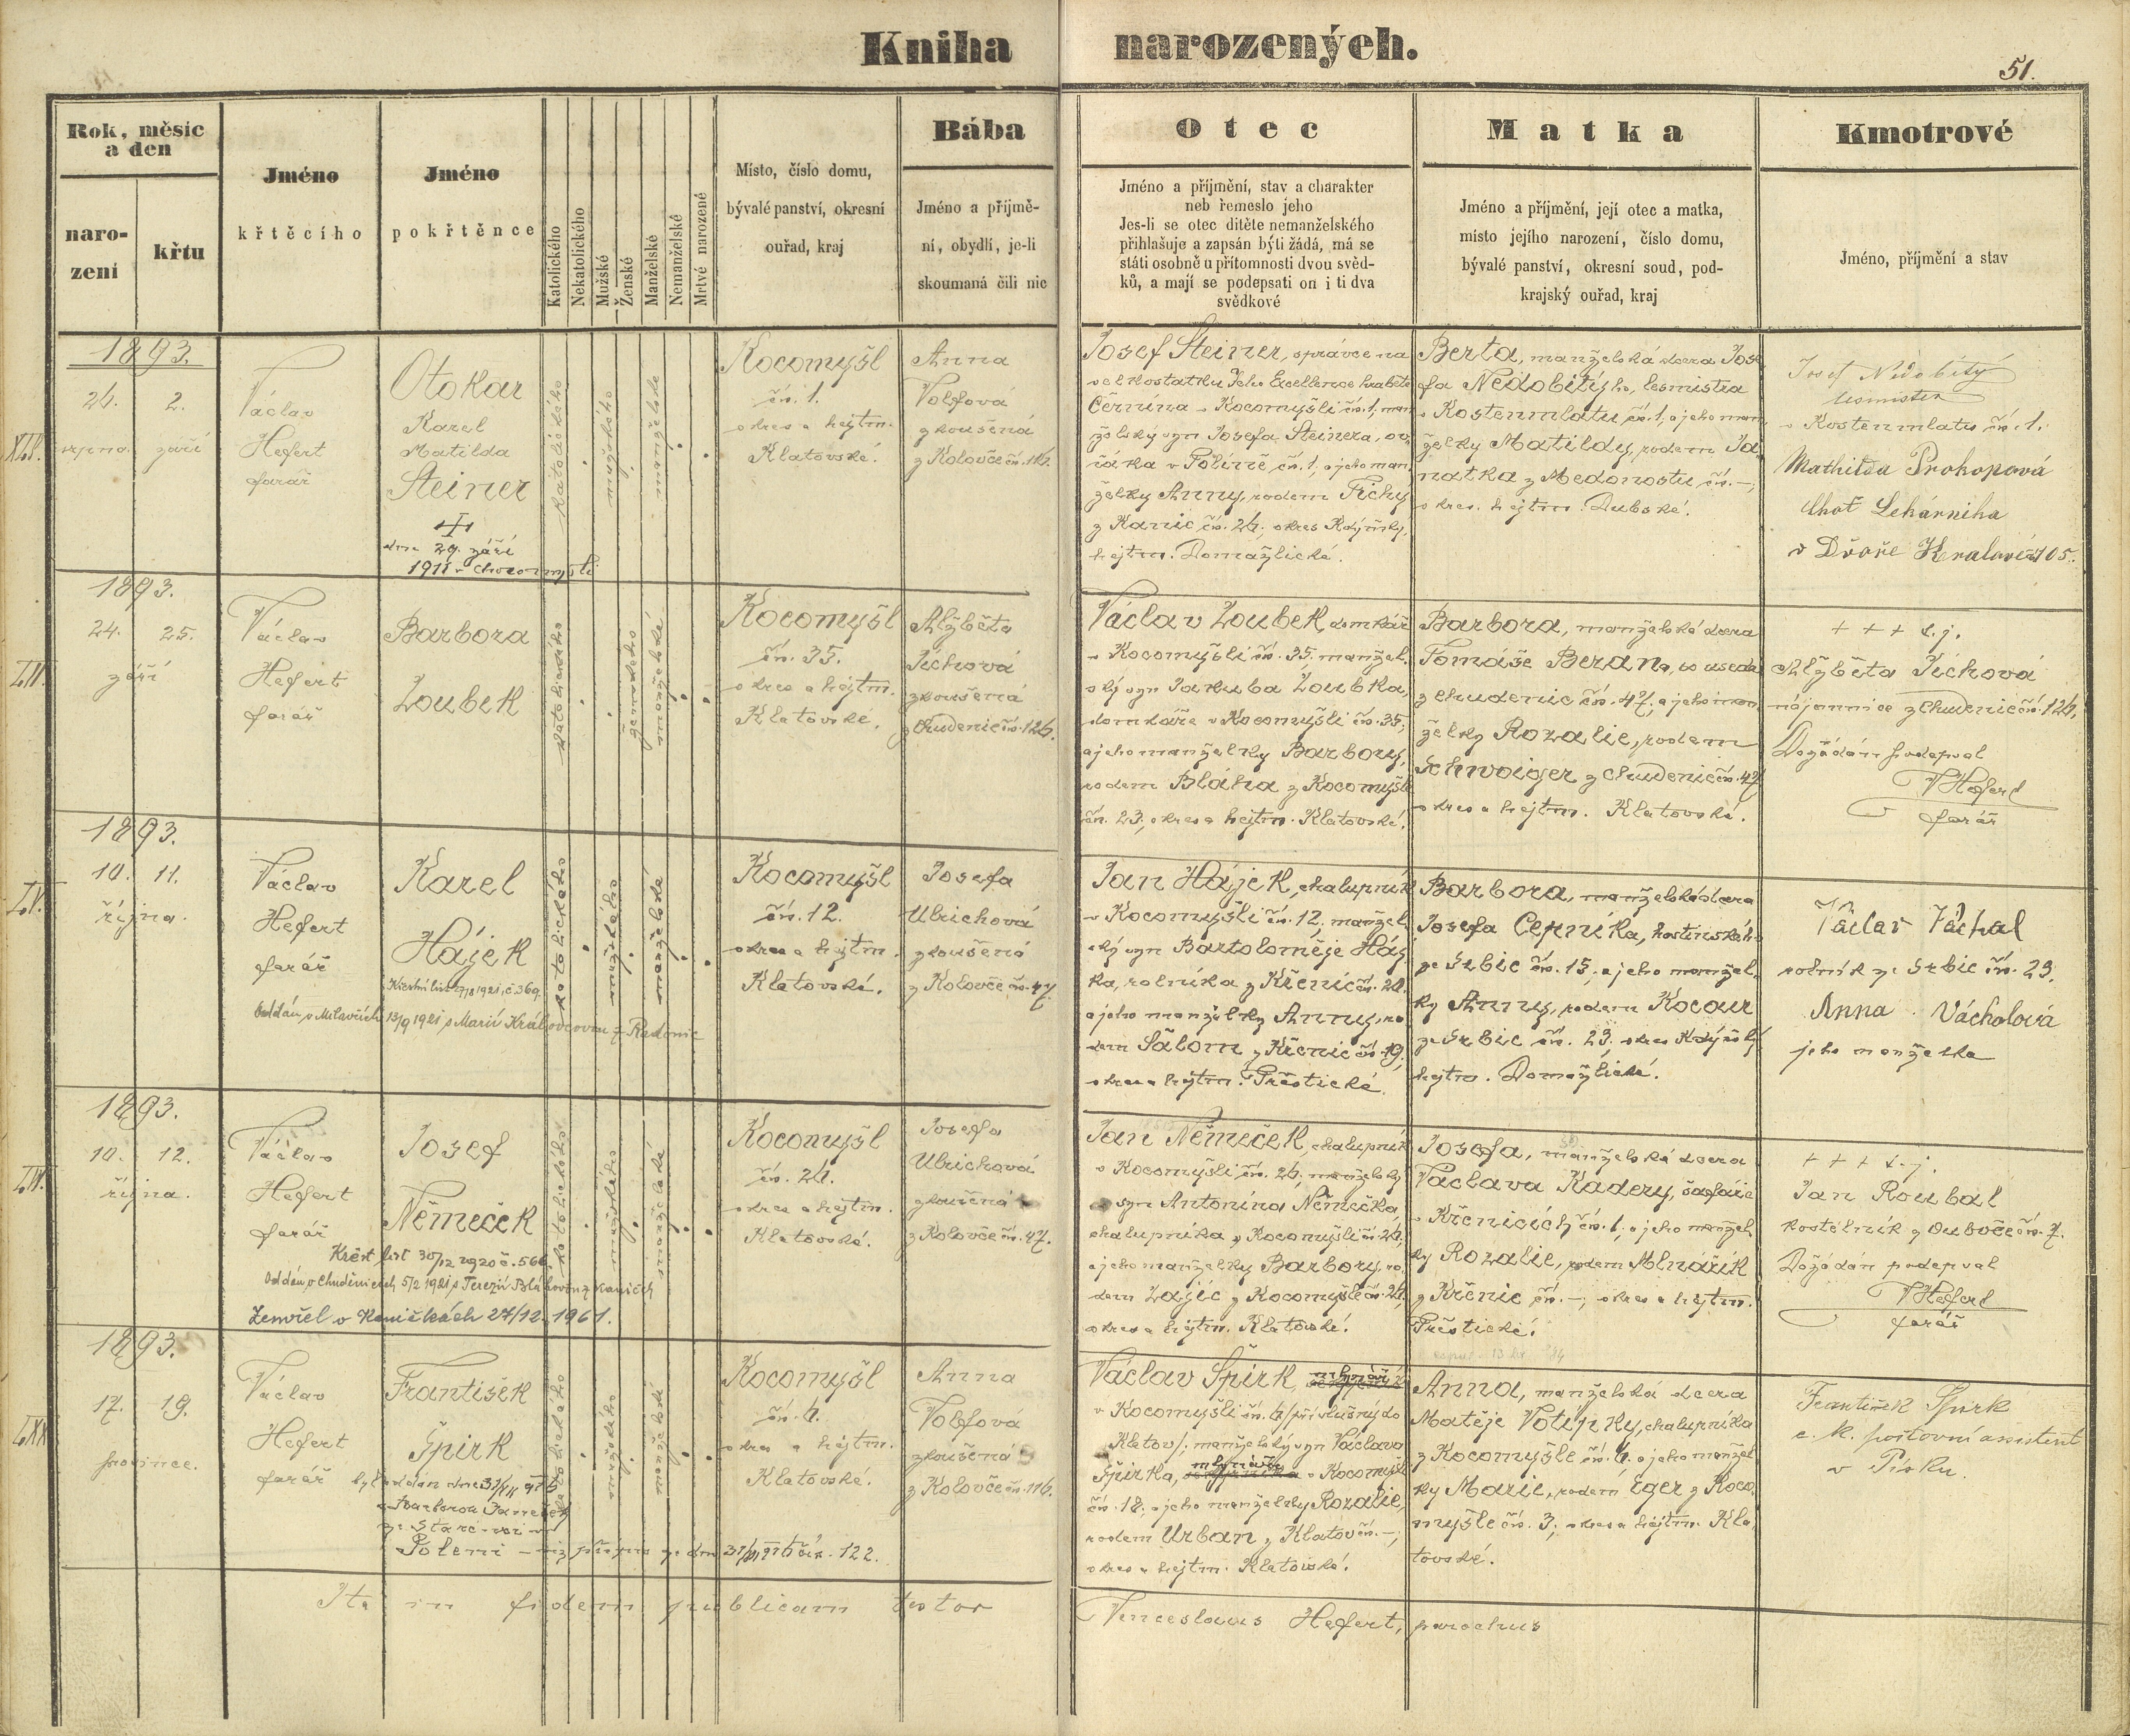 Kniha narozených.
51.
Rok, měsíc
a den
naro-
zení
křtu
Jméno
křtěcího
Jméno
pokřtěnce
Katolického
Nekatolického
Mužské
Ženské
Manželské
Nemanželské
Mrtvé narozené
Místo, číslo domu,
bývalé panství, okresní
ouřad, kraj
Bába
Jméno a příjmě-
ní, obydlí, je-li
skoumaná čili nic
Otec
Jméno a příjmění, stav a charakter
neb řemeslo jeho
Jes-li se otec dítěte nemanželského
přihlašuje a zapsán býti žádá, má se
státi osobně u přítomnosti dvou svěd-
ků, a mají se podepsati on i ti dva
svědkové
Matka
Jméno a příjmění, její otec a matka,
místo jejího narození, číslo domu,
bývalé panství, okresní soud, pod-
krajský ouřad, kraj
Kmotrové
Jméno, příjmění a stav
1893.
26. 2.
srpna září
Václav
Hefert
farář
Otokar
Karel
Matilda
Steiner
dne 29. září
katolického
mužského
manželské
Kocomyšl
čís. 1.
okres a hejtm.
Klatovské.
Anna
Volfová
zkoušená
z Kolovče čís. 116.
Josef Steiner, správce na
velkostatku Jeho Excellence hraběte
Černína v Kocomyšli čís. 1, man
želský syn Josefa Steinera, ov-
čáka v čís. 1, a jeho man
želky Anny, rodem Tichý
z Kanic čís. 26, okres Kdyňský,
hejtm. Domažlické.
Berta, manželská dcera Jose
fa Nedobitýho, lesmistra
v Kostenmlatu čís. 1, a jeho man
želky Matildy, rodem Ja
natka z Medonostu čís. —,
okres. hejtm. Dubské.
Josef Nedobitý
lesmistr
v Kostenmlatu čís. 1.
Mathilda Prokopová
choť Lékárníka
v Dvoře Králové 105.
1893.
24. 25.
září
Václav
Hefert
farář
Barbora
Loubek
katolického
ženského
manželské
Kocomyšl
čís. 35.
okres a hejtm.
Klatovské.
Alžběta
Tichová
zkoušená
z Chudenic čís. 126.
Václav Loubek, domkář
v Kocomyšli čís. 35, manžel.
ský syn Jakuba Loubka,
domkáře v Kocomyšli čís. 35,
a jeho manželky Barbory,
rodem Bláha z Kocomyšle
čís. 23, okres a hejtm. Klatovské.
Barbora, manželská dcera
Tomáše Berana,
z Chudenic čís. 47, a jeho man
želky Rozalie, rodem
Schwoiger z Chudenic čís. 47
okres a hejtm. Klatovské.
+ + + t.j.
Alžběta Tichová
nájemnice z Chudenic čís. 126.
Dožádán podepsal
VHefert
farář
1893.
10. 11.
října.
Václav
Hefert
farář
Karel
Hájek
Oddán v Milavčích 13/9 1921 s Marií Královcovou z Radonic
katolického
mužského
manželské
Kocomyšl
čís. 12.
okres a hejtm.
Klatovské.
Josefa
Ulrichová
zkoušená
z Kolovče čís. 47.
Jan Hájek, chalupník
v Kocomyšli čís. 12, manžel
ský syn Bartoloměje Háj
ka, rolníka z Křenic čís. 20.
a jeho manželky Anny, ro
dem Šalom z Křenic čís. 19,
okres a hejtm. Přeštické.
Barbora, manželská dcera
Josefa Černíka, hostinského
ze Srbic čís. 15, a jeho manžel
ky Anny, rodem Kocour
ze Srbic čís. 23. okres Kdyňský
hejtm. Domažlické.
Václav Váchal
rolník ze Srbic čís. 23.
Anna Váchalová
jeho manželka
1893.
10. 12.
října.
Václav
Hefert
farář
Josef
Němeček
Křest. list 30/12 1920 č. 566.
Oddán v Chudenicích 5/2 1921 s Terezií Bláhovou z Kaniček
Zemřel v Kaničkách 27/12. 1961.
katolického
mužského
manželské
Kocomyšl
čís. 26.
okres a hejtm.
Klatovské.
Josefa
Ulrichová
zkoušená
z Kolovče čís. 47.
Jan Němeček, chalupník
v Kocomyšli čís. 26, manželský
syn Antonína Němečka
chalupníka z Kocomyšli čís. 26,
a jeho manželky Barbory, ro
dem Zajíc z Kocomyšle čís. 26,
okres a hejtm. Klatovské.
Josefa, manželská dcera
Václava Kadery, šafáře
v Křenicích čís. 1, a jeho manžel
ky Rozalie, rodem Mlnářík
z Křenic čís. —, okres a hejtm.
Přeštické.
+ + + t.j.
Jan Roubal
kostelník z Ouboče čís. 7.
Dožádán podepsal
VHefert
farář
1893.
17. 19.
prosince.
Václav
Hefert
farář
František
Špirk
katolického
mužského
manželské
Kocomyšl
čís. 6.
okres a hejtm.
Klatovské.
Anna
Volfová
zkoušená
z Kolovče čís. 116.
Václav Špirk, mlynář
v Kocomyšli čís. 6 /příslušný do
Klatov/, manželský syn Václava
Špirka, mlynáře v Kocomyšli
čís. 18, a jeho manželky Rozalie,
rodem Urban z Klatov čís. —,
okres a hejtm. Klatovské.
Anna, manželská dcera
Matěje Votípky, chalupníka
z Kocomyšle čís. 6. a jeho manžel
ky Marie, rodem Eger z Koco
myšle čís. 3, okres a hejtm. Kla
tovské.
František Špirk
c. k. poštovní assistent
v Písku.
Ita in fidem publicam testor
Venceslaus Hefert, parochus